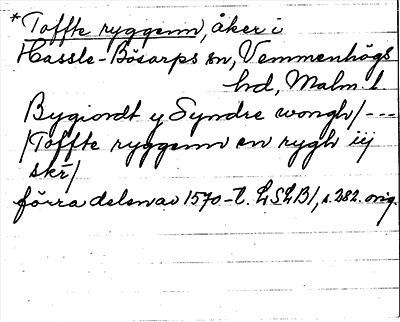 *Toffte ryggenn, åker i
Hassle-Bösarps sn, Vemmenhögs
hd, Malm. l.
Bygiordt y Syndre wongh/---
/Toffte ryggenn en rygh iij
skr/
förra delen av 1570-t. LSLB1, s. 282. orig.